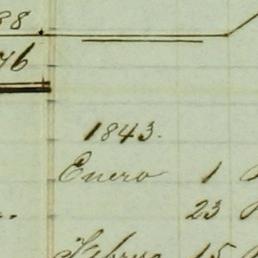 88.
76
1843.
Enero 1
23
Febrero 15